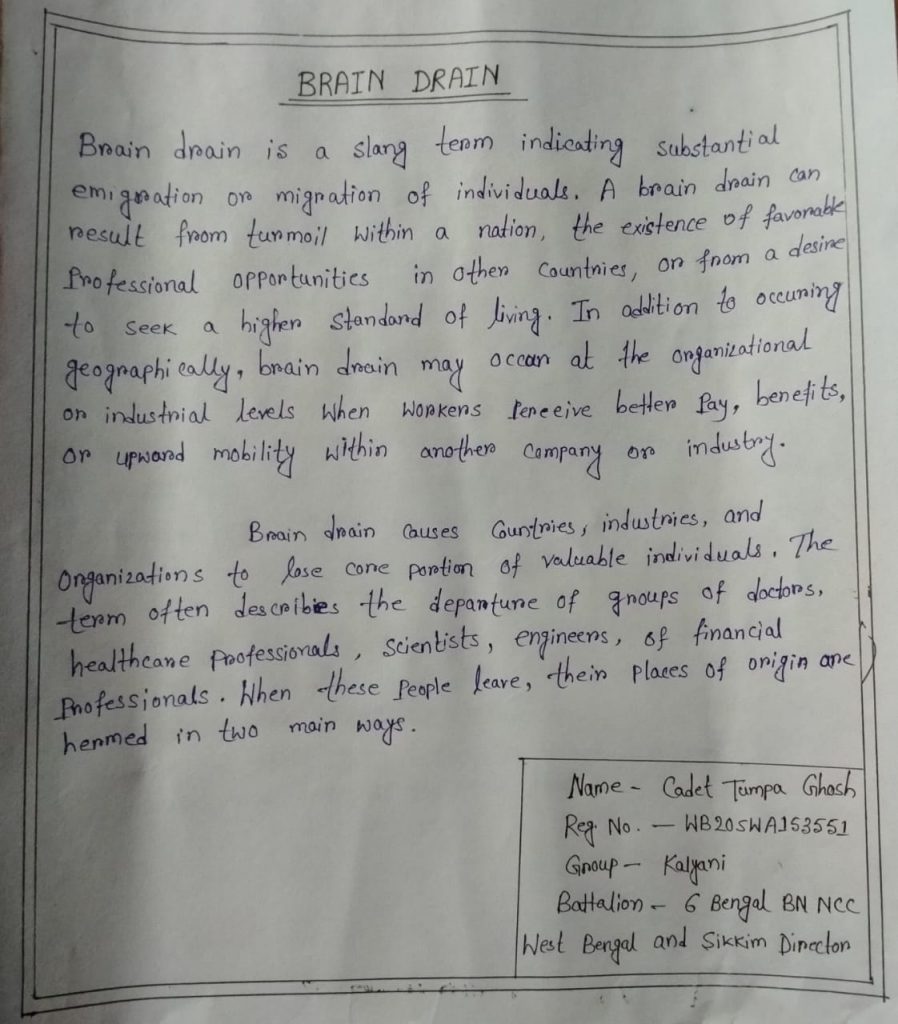 BRAIN DRAIN
Brain drain is a slang term indicating substantial
emigration or migration of individuals. A brain drain can
result from turmoil within a nation, the existence of favorable
Professional opportunities in other countries, or from a desire
to seek a higher standard of living. In addition to occuring
geographically, brain drain may occar at the organizational
or industrial levels when workers Perceive better Pay, benefits,
or upward mobility within another company or industry.
Brain drain causes Countries, industries, and
Organizations to lose core portion of valuable individuals. The
term often describes the departure of groups of doctors,
healthcare Professionals, scientists, engineers, of financial
Professionals. When these People leave, their places of origin are
hermed in two main ways.
Name - Cadet Tumpa Ghosh
Reg. No. - WB20SWA153551
Group - Kalyani
Battalion - 6 Bengal BN NCC
West Bengal and Sikkim Director